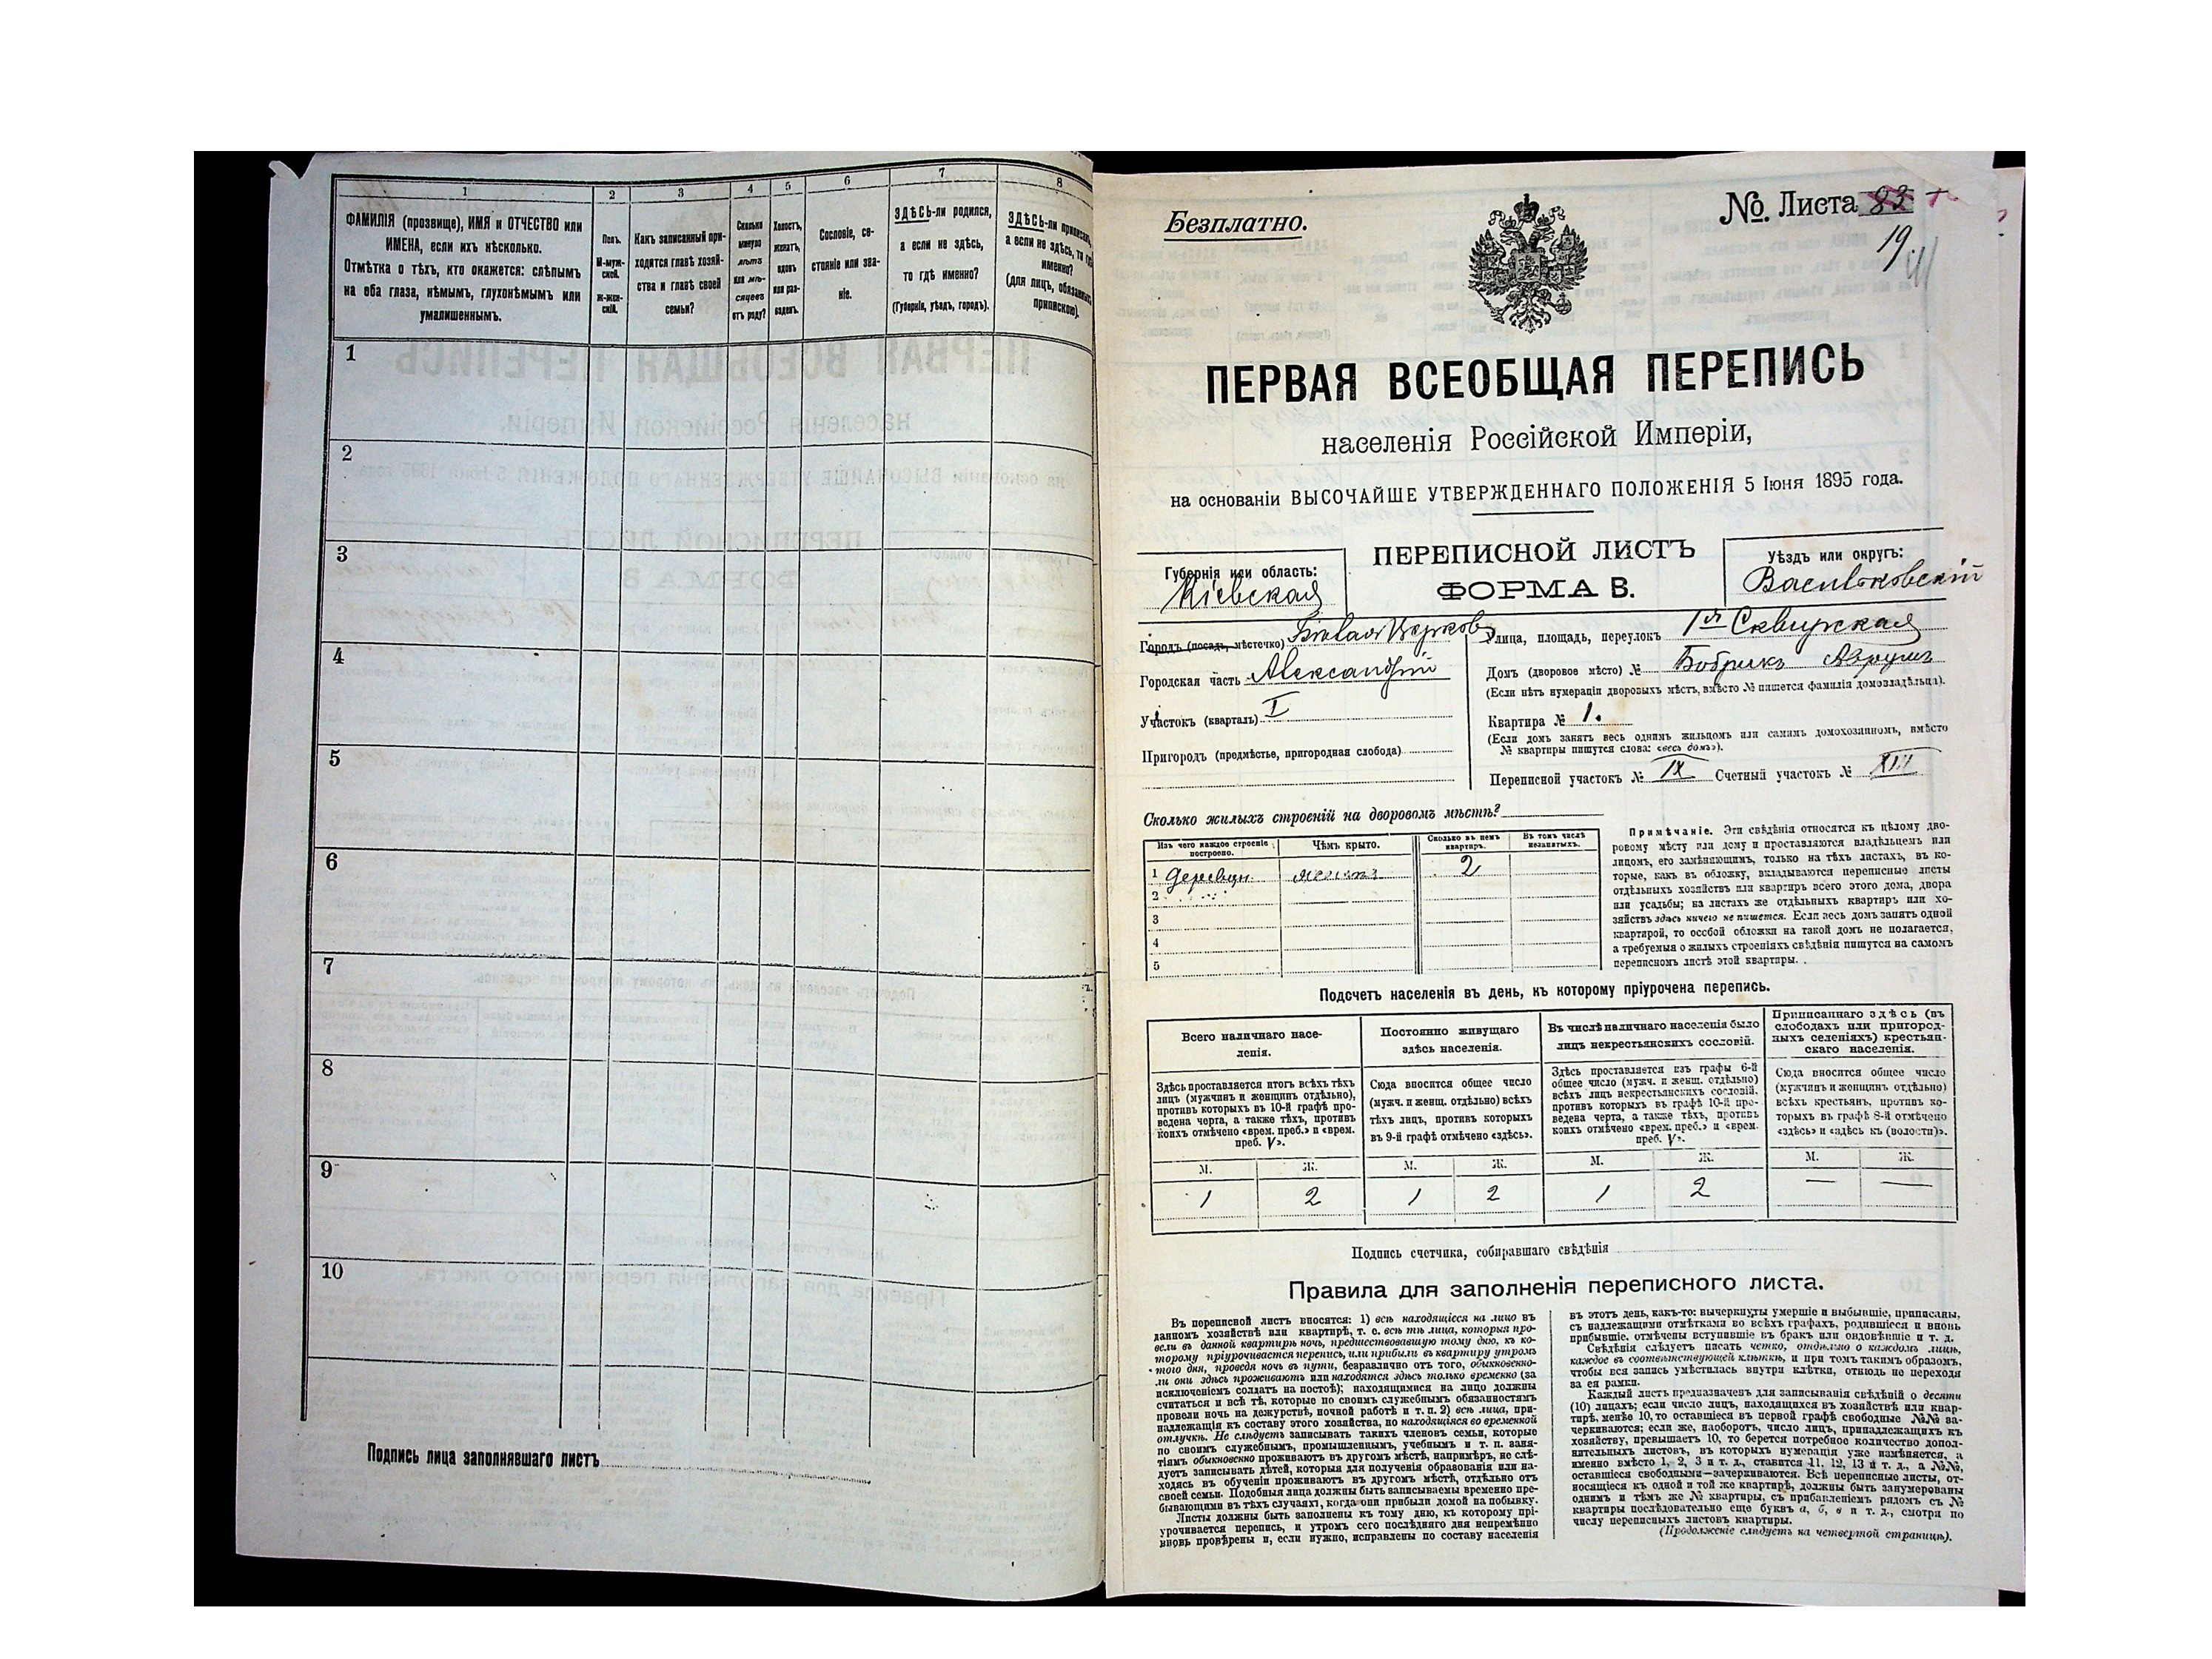 1 2 3 4 5 6 7 8
ФАМИЛІЯ (прозвище), ИМЯ и ОТЧЕСТВО или
ИМЕНА, если ихъ нѣсколько.
Отмѣтка о тѣхъ, кто окажется: слѣпымъ
на оба глаза, нѣмымъ, глухонѣмымъ или
умалишеннымъ.
Полъ.
М-муж-
ской.
Ж-жен-
скій.
Какъ записанный при-
ходится главѣ хозяй-
ства и главѣ своей
семьи?
Сколько
минуло
лѣтъ
или мѣ-
сяцевъ
отъ роду?
Холостъ,
женатъ,
вдовъ
или раз-
веденъ.
Сословіе, со-
стояніе или зва-
ніе.
ЗДѢСЬ-ли родился,
а если не здѣсь,
то гдѣ именно?
(Губернія, уѣздъ, городъ).
ЗДѢСЬ-ли приписанъ,
а если не здѣсь, то гдѣ
именно?
(для лицъ, обязанныхъ
припискою).
1
2
3
4
5
6
7
8
9
10
Подпись лица заполнявшаго листъ
Безплатно.
№. Листа 83
19.
ПЕРВАЯ ВСЕОБЩАЯ ПЕРЕПИСЬ
населенія Россійской Имперіи,
на основаніи ВЫСОЧАЙШЕ УТВЕРЖДЕННАГО ПОЛОЖЕНІЯ 5 Іюня 1895 года.
Губернія или область:
Кіевская
ПЕРЕПИСНОЙ ЛИСТЪ
ФОРМА В.
Уѣздъ или округъ:
Васильковскій
Городъ (посадъ, мѣстечко) Бѣлая Церковь
Городская часть Александрій
Участокъ (кварталъ) I
Пригородъ (предмѣстье, пригородная слобода)
Улица, площадь, переулокъ 1я Сквирская
Домъ (дворовое мѣсто) № Бобрикъ
(Если нѣтъ нумераціи дворовыхъ мѣстъ, вмѣсто № пишется фамилія домовладѣльца).
Квартира № 1.
(Если домъ занятъ весь однимъ жильцомъ или самимъ домохозяиномъ, вмѣсто
№ квартиры пишутся слова: «весь домъ»).
Переписной участокъ № IX Счетный участокъ № XIII
Сколько жилыхъ строеній на дворовомъ мѣстѣ?
Изъ чего каждое строеніе
построено.
Чѣмъ крыто.
Сколько въ немъ
квартиръ.
Въ томъ числѣ
незанятыхъ.
1 деревян. 2
2
3
4
5
Примѣчаніе. Эти свѣдѣнія относятся къ цѣлому дво-
ровому мѣсту или дому и проставляются владѣльцемъ или
лицомъ, его замѣняющимъ, только на тѣхъ листахъ, въ ко-
торые, какъ въ обложку, вкладываются переписные листы
отдѣльныхъ хозяйствъ или квартиръ всего этого дома, двора
или усадьбы; на листахъ же отдѣльныхъ квартиръ или хо-
зяйствъ здѣсь ничего не пишется. Если весь домъ занятъ одной
квартирой, то особой обложки на такой домъ не полагается,
а требуемыя о жилыхъ строеніяхъ свѣдѣнія пишутся на самомъ
переписномъ листѣ этой квартиры.
Подсчетъ населенія въ день, къ которому пріурочена перепись.
Всего наличнаго насе-
ленія.
Постоянно живущаго
здѣсь населенія.
Въ числѣ наличнаго населенія было
лицъ некрестьянскихъ сословій.
Приписаннаго здѣсь (въ
слободахъ или пригород-
ныхъ селеніяхъ) крестьян-
скаго населенія.
Здѣсь проставляется итогъ всѣхъ тѣхъ
лицъ (мужчинъ и женщинъ отдѣльно),
противъ которыхъ въ 10-й графѣ про-
ведена черта, а также тѣхъ, противъ
коихъ отмѣчено «врем. преб.» и «врем.
преб. V».
Сюда вносится общее число
(мужч. и женщ. отдѣльно) всѣхъ
тѣхъ лицъ, противъ которыхъ
въ 9-й графѣ отмѣчено «здѣсь».
Здѣсь проставляется изъ графы 6-й
общее число (мужч. и женщ. отдѣльно)
всѣхъ лицъ некрестьянскихъ сословій,
противъ которыхъ въ графѣ 10-й про-
ведена черта, а также тѣхъ, противъ
коихъ отмѣчено «врем. преб.» и «врем.
преб. V».
Сюда вносится общее число
(мужчинъ и женщинъ отдѣльно)
всѣхъ крестьянъ, противъ ко-
торыхъ въ графѣ 8-й отмѣчено
«здѣсь» и «здѣсь къ (волости)».
М. Ж. М. Ж. М. Ж. М. Ж.
1 2 1 2 1 2 — —
Подпись счетчика, собиравшаго свѣдѣнія
Правила для заполненія переписного листа.
Въ переписной листъ вносятся: 1) всѣ находящіеся на лицо въ
данномъ хозяйствѣ или квартирѣ, т. е. всѣ тѣ лица, которыя про-
вели въ данной квартирѣ ночь, предшествовавшую тому дню, къ ко-
торому пріурочивается перепись, или прибыли въ квартиру утромъ
того дня, проведя ночь въ пути, безразлично отъ того, обыкновенно-
ли они здѣсь проживаютъ или находятся здѣсь только временно (за
исключеніемъ солдатъ на постоѣ); находящимися на лицо должны
считаться и всѣ тѣ, которые по своимъ служебнымъ обязанностямъ
провели ночь на дежурствѣ, ночной работѣ и т. п. 2) всѣ лица, при-
надлежащія къ составу этого хозяйства, но находящіяся во временной
отлучкѣ. Не слѣдуетъ записывать такихъ членовъ семьи, которые
по своимъ служебнымъ, промышленнымъ, учебнымъ и т. п. заня-
тіямъ обыкновенно проживаютъ въ другомъ мѣстѣ, напримѣръ, не слѣ-
дуетъ записывать дѣтей, которыя для полученія образованія или на-
ходясь въ обученіи проживаютъ въ другомъ мѣстѣ, отдѣльно отъ
своей семьи. Подобныя лица должны быть записываемы временно пре-
бывающими въ тѣхъ случаяхъ, когда они прибыли домой на побывку.
Листы должны быть заполнены къ тому дню, къ которому прі-
урочивается перепись, и утромъ сего послѣдняго дня непремѣнно
вновь провѣрены и, если нужно, исправлены по составу населенія
въ этотъ день, какъ-то: вычеркнуты умершіе и выбывшіе, приписаны,
съ надлежащими отмѣтками во всѣхъ графахъ, родившіеся и вновь
прибывшіе, отмѣчены вступившіе въ бракъ или овдовѣвшіе и т. д.
Свѣдѣнія слѣдуетъ писать четко, отдѣльно о каждомъ лицѣ,
каждое въ соотвѣтствующей клѣткѣ, и при томъ такимъ образомъ,
чтобы вся запись умѣстилась внутри клѣтки, отнюдь не переходя
за ея рамки.
Каждый листъ предназначенъ для записыванія свѣдѣній о десяти
(10) лицахъ; если число лицъ, находящихся въ хозяйствѣ или квар-
тирѣ, менѣе 10, то оставшіеся въ первой графѣ свободные №№ за-
черкиваются; если же, наоборотъ, число лицъ, принадлежащихъ къ
хозяйству, превышаетъ 10, то берется потребное количество допол-
нительныхъ листовъ, въ которыхъ нумерація уже измѣняется, а
именно вмѣсто 1, 2, 3 и т. д., ставится 11, 12, 13 и т. д., а №№,
оставшіеся свободными—зачеркиваются. Всѣ переписные листы, от-
носящіеся къ одной и той же квартирѣ, должны быть занумерованы
однимъ и тѣмъ же № квартиры, съ прибавленіемъ рядомъ съ №
квартиры послѣдовательно еще буквъ а, б, в и т. д., смотря по
числу переписныхъ листовъ квартиры.
(Продолженіе слѣдуетъ на четвертой страницѣ).